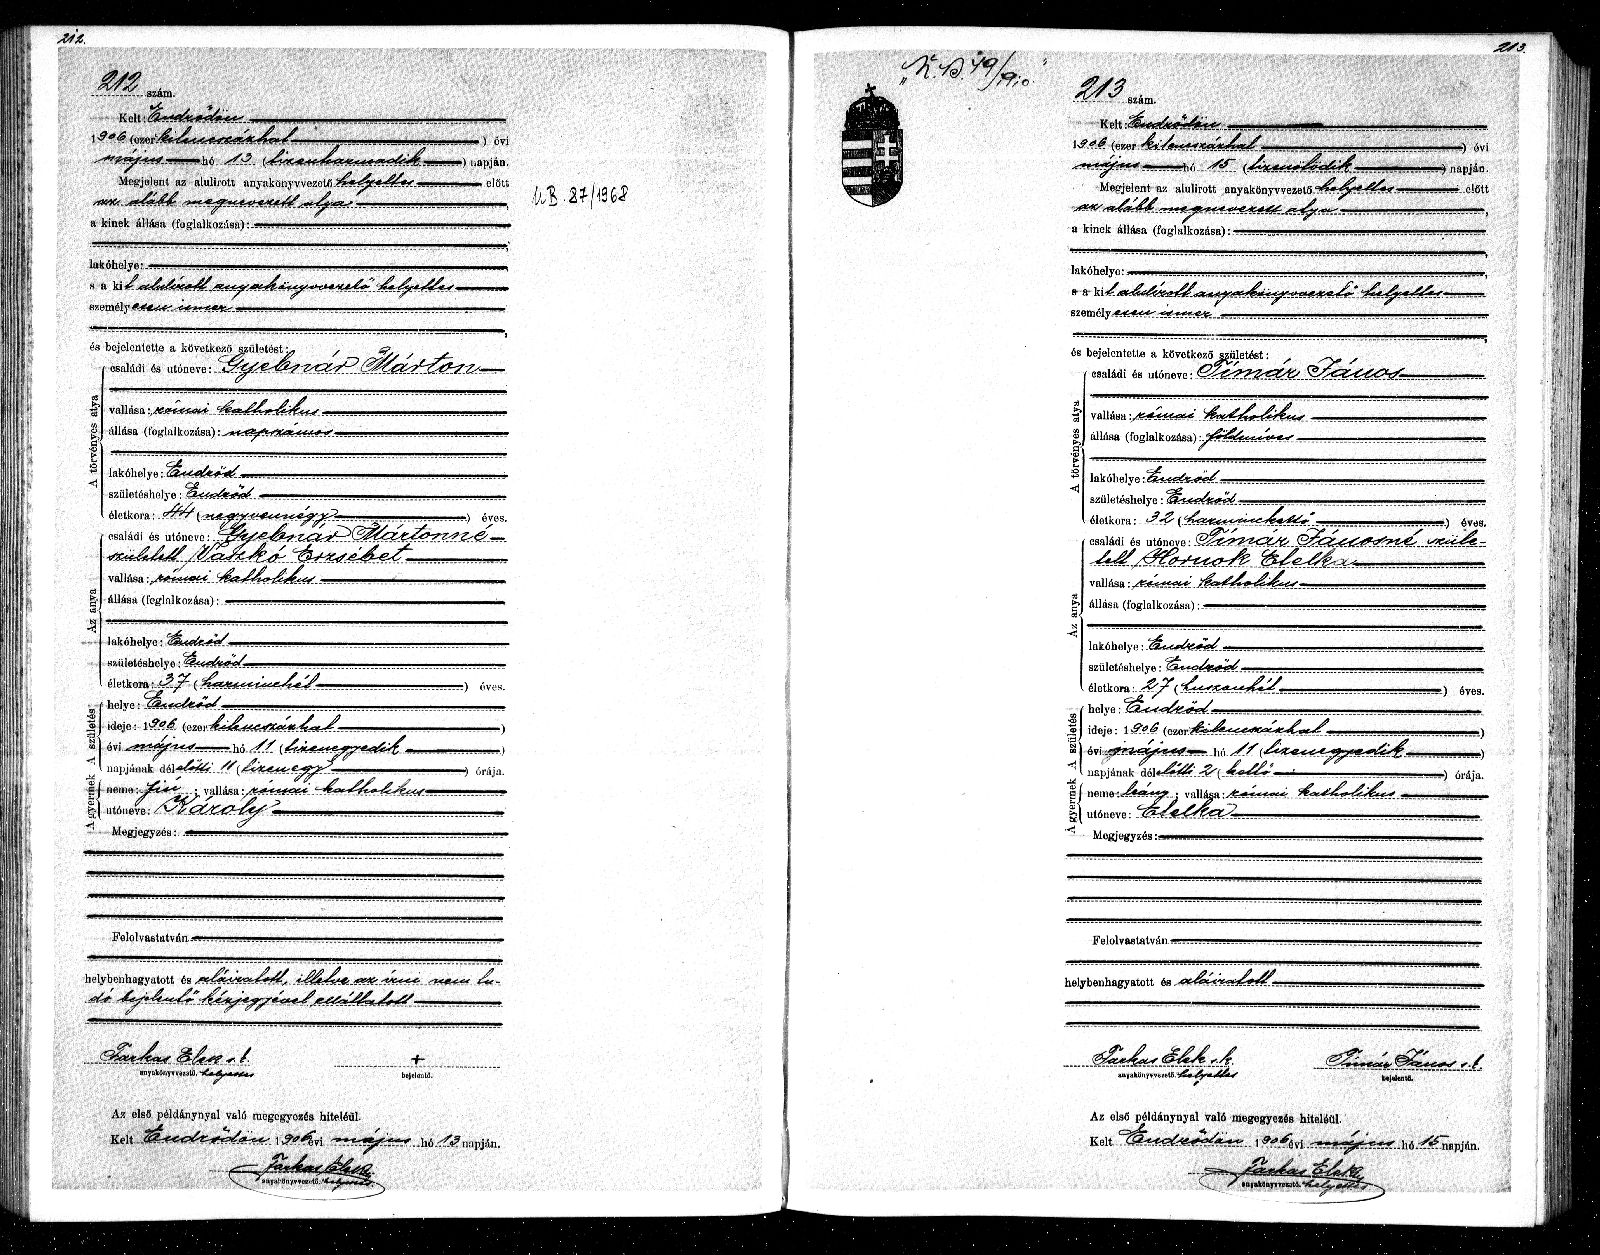 212.
212 szám.
Kelt: Endrődön
1906 (ezerkilenczszázhat) évi
május hó 13. (tizenharmadik) napján.
Megjelent az alulirott anyakönyvvezető helyettes előtt
az alább megnevezett atya,
a kinek állása (foglalkozása):
lakóhelye:
s a kit alulírott anyakönyvvezető helyettes
személyesen ismer
és bejelentette a következő születést:
A törvényes atya
családi és utóneve: Gyebnár Márton
vallása: római katholikus
állása (foglalkozása): napszámos
lakóhelye: Endrőd
születéshelye: Endrőd
életkora: 44 (negyvennégy) éves.
Az anya
családi és utóneve: Gyebnár Mártonné
született Vaszkó Erzsébet
vallása: római katholikus
állása (foglalkozása):
lakóhelye: Endrőd
születéshelye: Endrőd
életkora: 37 (harminchét) éves.
A születés
helye: Endrőd
ideje: 1906 (ezerkilenczszázhat)
évi május hó 11 (tizenegyedik)
napjának délelőtti 11 (tizenegy) órája.
A gyermek
neme: fiú; vallása: római katholikus
utóneve: Károly
Megjegyzés:
Felolvastatván
helybenhagyatott és aláiratott, illetve az írni nem tu-
dó bejelentő kézjegyével elláttatott
Farkas Elek s. k. +
anyakönyvvezető. helyettes bejelentő.
Az első példánynyal való megegyezés hiteléül.
Kelt Endrődön 1906 évi május hó 13 napján.
Farkas Elek
anyakönyvvezető. helyettes
U.B. 87/1968
213.
213 szám.
Kelt: Endrődön
1906 (ezerkilenczszázhat) évi
május hó 15 (tizenötödik) napján.
Megjelent az alulirott anyakönyvvezető helyettes előtt
az alább megnevezett atya,
a kinek állása (foglalkozása):
lakóhelye:
s a kit alulírott anyakönyvvezető helyettes
személyesen ismer
és bejelentette a következő születést:
A törvényes atya
családi és utóneve: Tímár János
vallása: római katholikus
állása (foglalkozása): földmíves
lakóhelye: Endrőd
születéshelye: Endrőd
életkora: 32 (harminckettő) éves.
Az anya
családi és utóneve: Tímár Jánosné szüle-
tett Hornok Etelka
vallása: római katholikus
állása (foglalkozása):
lakóhelye: Endrőd
születéshelye: Endrőd
életkora: 27 (huszonhét) éves.
A születés
helye: Endrőd
ideje: 1906 (ezerkilenczszázhat)
évi május hó 11 (tizenegyedik)
napjának délelőtti 2 (kettő) órája.
A gyermek
neme: leány; vallása: római katholikus
utóneve: Etelka
Megjegyzés:
Felolvastatván
helybenhagyatott és aláiratott
Farkas Elek s. k. Tímár János s. k.
anyakönyvvezető. helyettes bejelentő.
Az első példánynyal való megegyezés hiteléül.
Kelt Endrődön 1906 évi május hó 15 napján.
Farkas Elek
anyakönyvvezető. helyettes